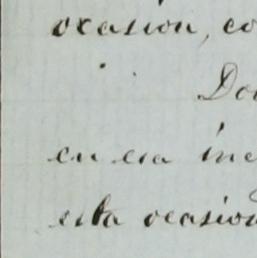 ocasion, co
Do
en esa in
esta ocasion